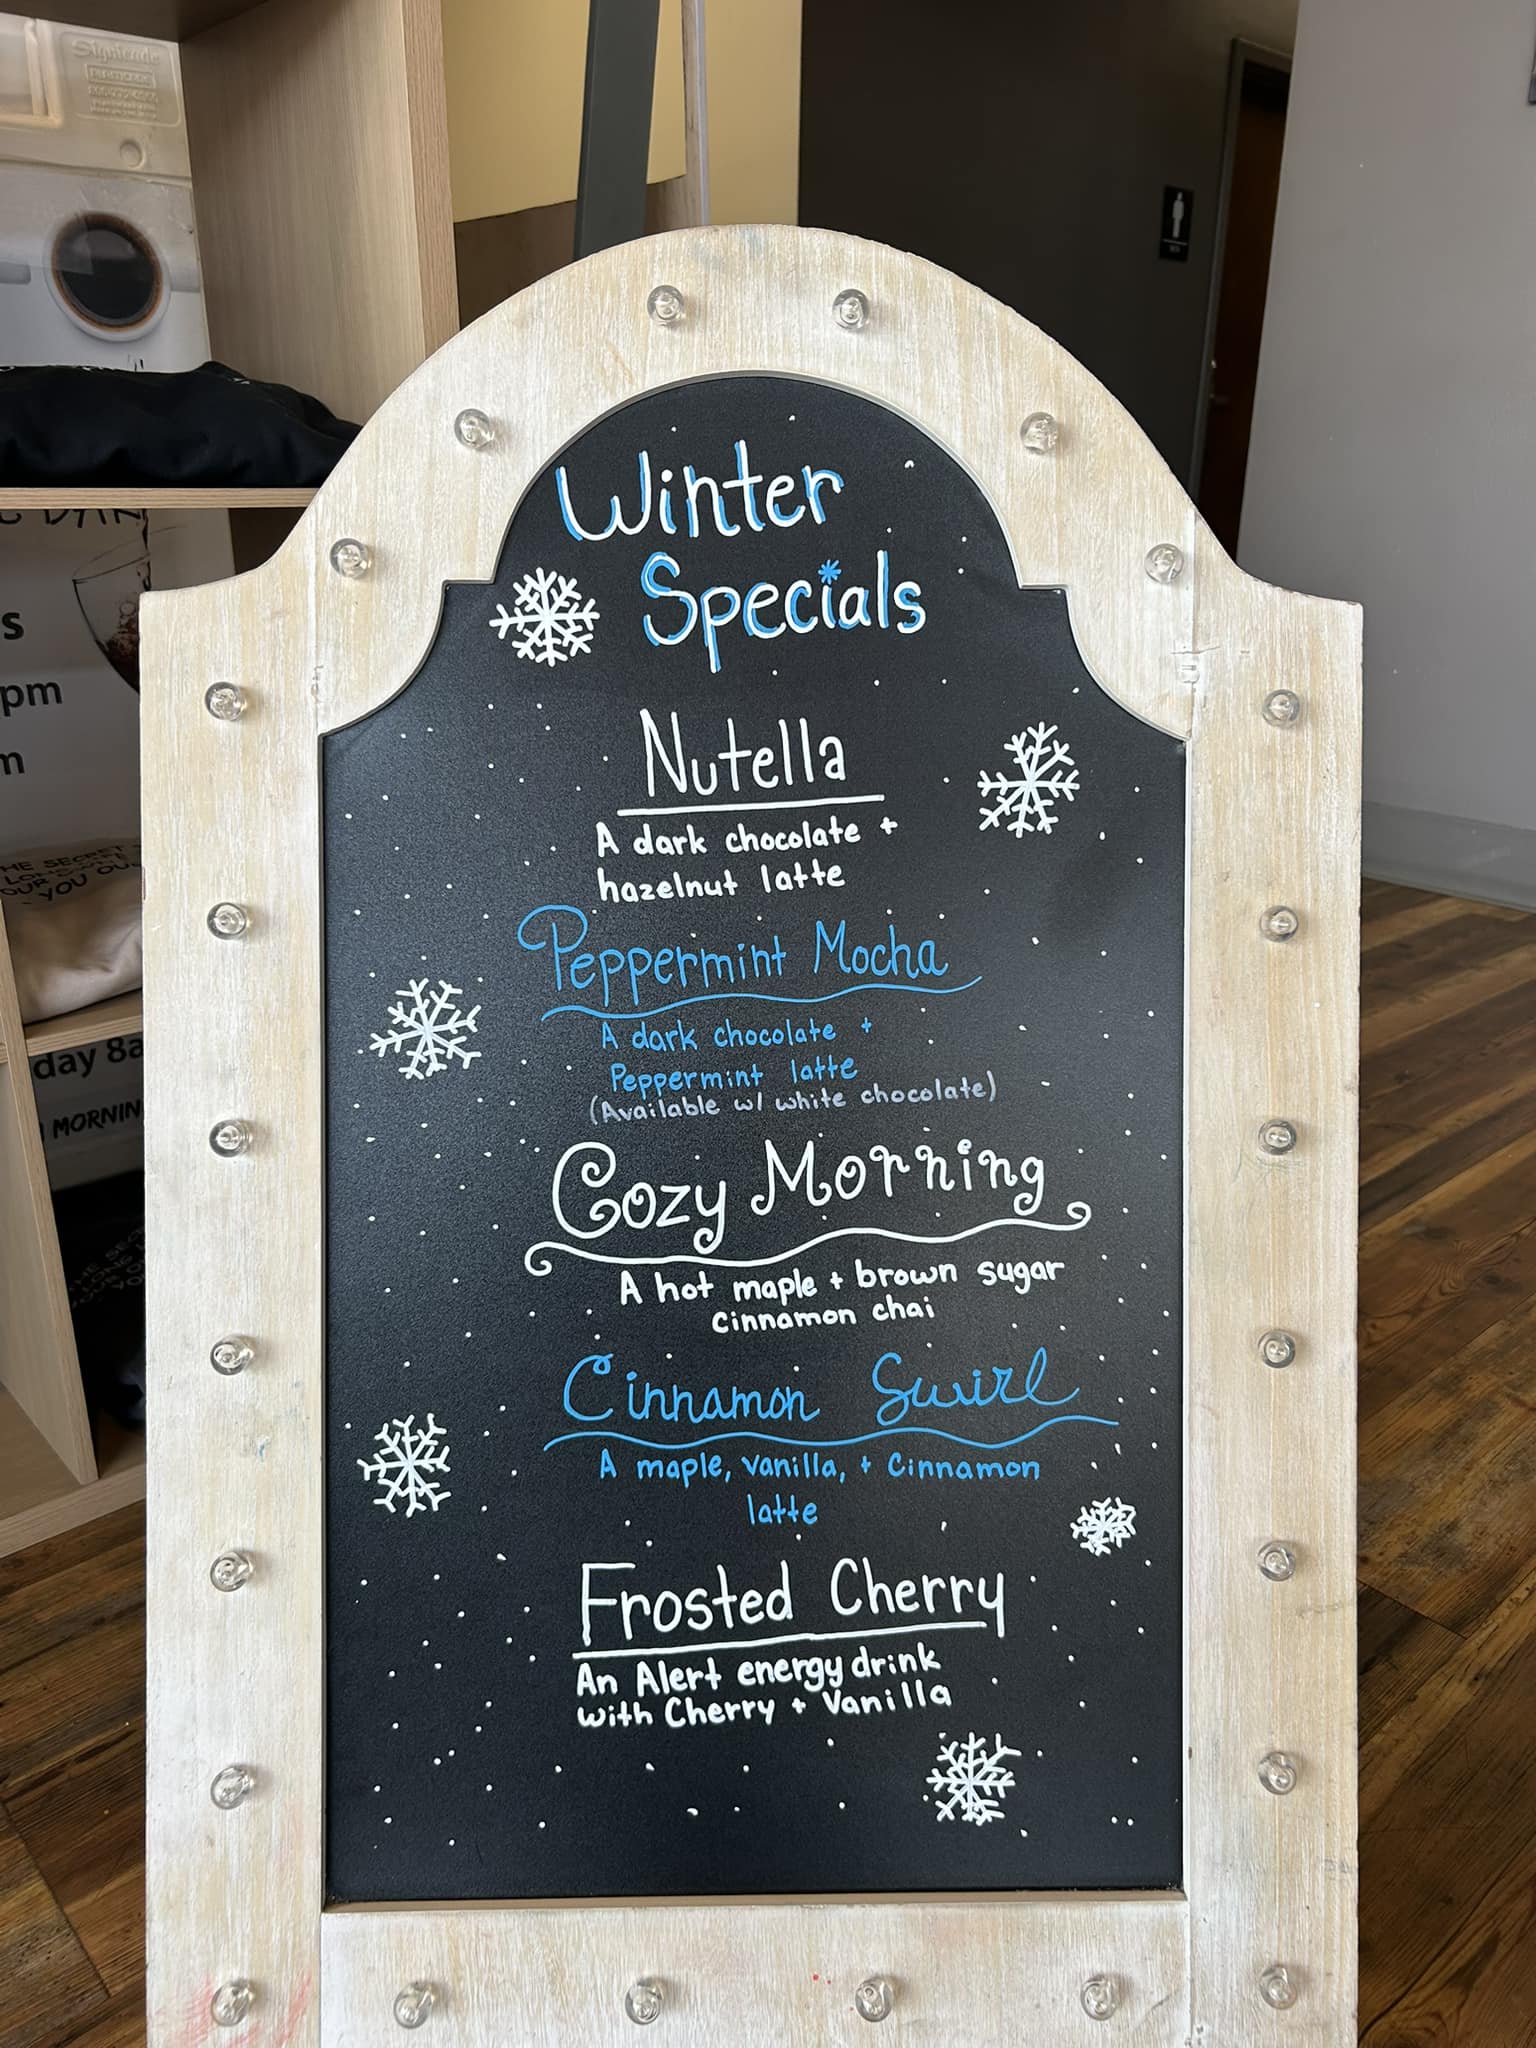 Signicade
s
pm
m
THE SECRET
YOU
day 8a
MORNIN
Winter
Specials
Nutella
A dark chocolate +
hazelnut latte
Peppermint Mocha
A dark chocolate +
Peppermint latte
(Available w/ white chocolate)
Cozy Morning
A hot maple + brown sugar
cinnamon chai
Cinnamon Swirl
A maple, vanilla, + Cinnamon
latte
Frosted Cherry
An Alert energy drink
with Cherry + Vanilla